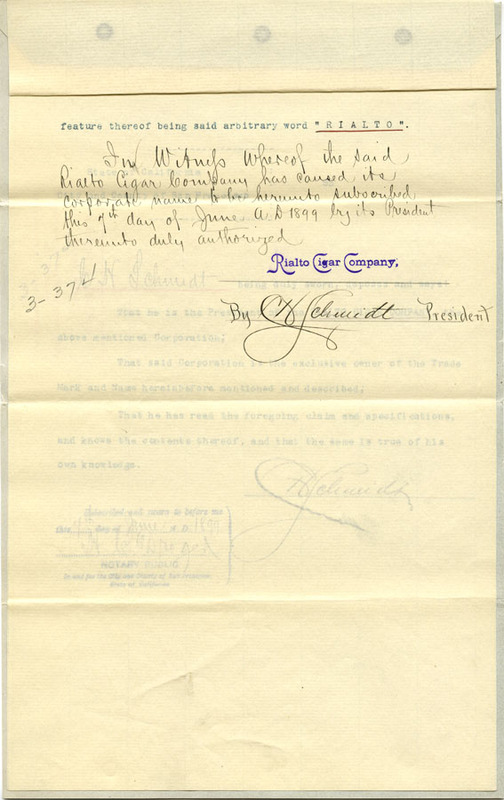 feature thereof being said arbitrary word "RIALTO".
In Witness Whereof the said
Rialto Cigar Company has caused its
corporate name to be hereunto subscribed
this 7th day of June A.D 1899 by its President
thereunto duly authorized
Rialto Cigar Company,
3-374
By C H Schmidt President
H Schmidt being duly sworn, deposes and says:
That he is the President
above mentioned Corporation;
That said Corporation is the exclusive owner of the Trade
Mark and Name hereinbefore mentioned and described;
That he has read the foregoing claim and specifications,
and knows the contents thereof, and that the same is true of his
own knowledge.
C H Schmidt
Subscribed and sworn to before me
this 7th day of June A.D. 1899
NOTARY PUBLIC
In and for the City and County of San Francisco
State of California